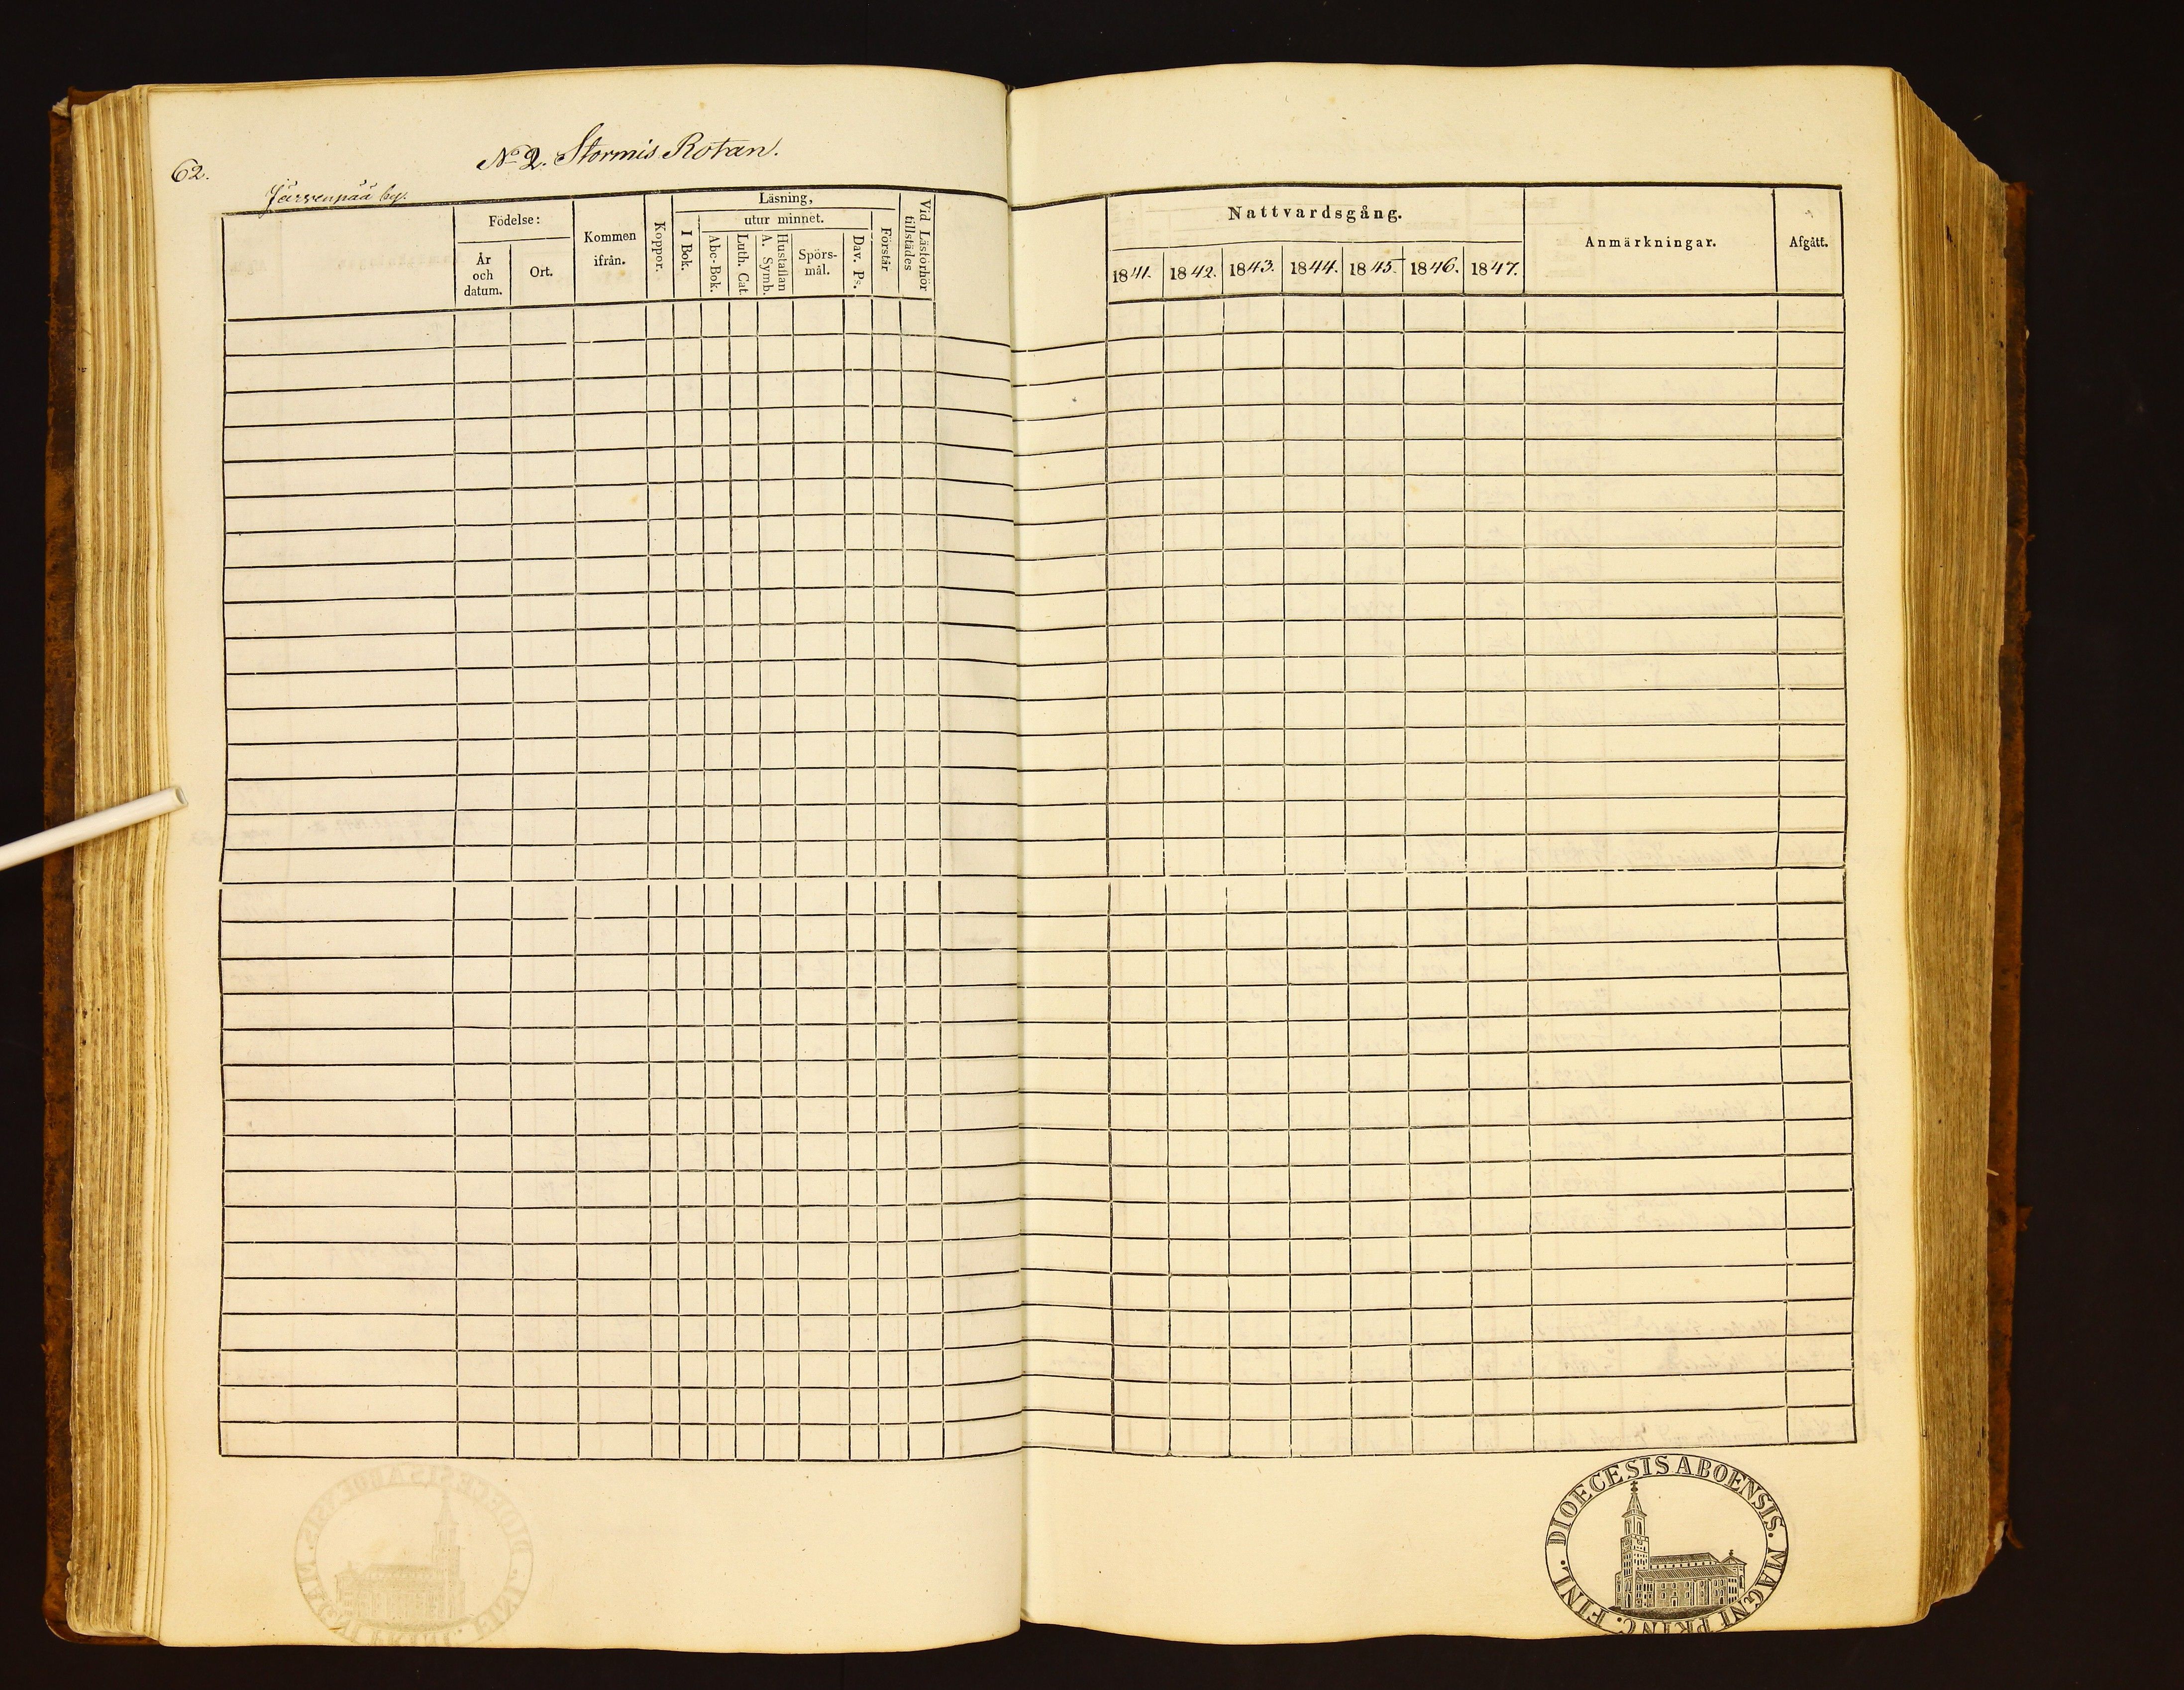 62.
No 2. Stormis Rotan.
Järvenpää by.
Födelse:
År och datum.
Ort.
Kommen ifrån.
Koppor.
Läsning,
I Bok.
utur minnet.
Abc-Bok.
Luth. Cat.
Hustaflan A. Symb.
Spörs-mål.
Dav. Ps.
Förstår
Vid Läsförhör tillstädes
Nattvardsgång.
1841. 1842. 1843. 1844. 1845. 1846. 1847.
Anmärkningar.
Afgått.
DIOECESIS ABOENSIS. MAGNI PRINC: FINL.